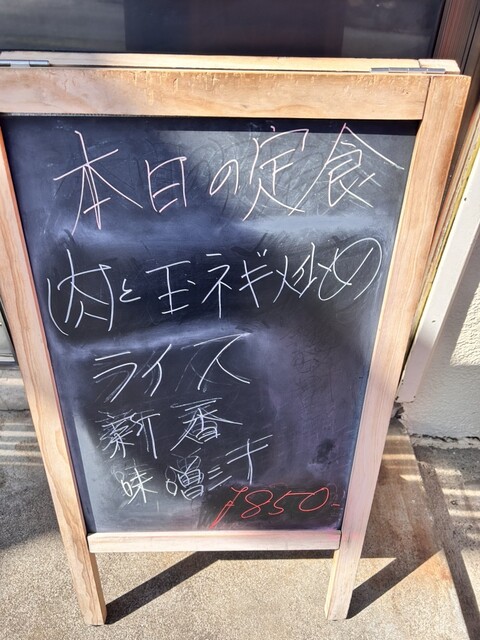 本日の定食
肉と玉ネギ炒め
ライス
新番
味噌汁
¥850-